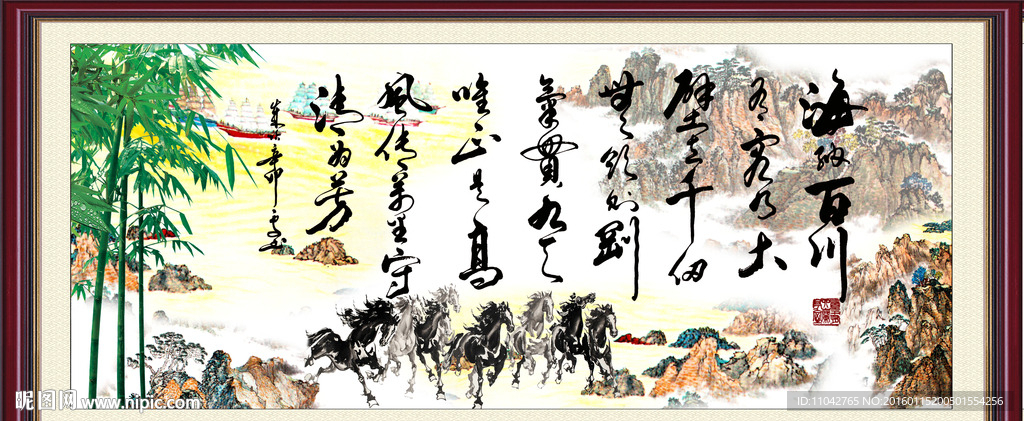 海纳百川
有容乃大
壁立千仞
无欲则刚
氣貫九天
唯正是高
風传万里守
清为芳
昵图网 www.nipic.com
ID:11042765 NO:20160115200501554256